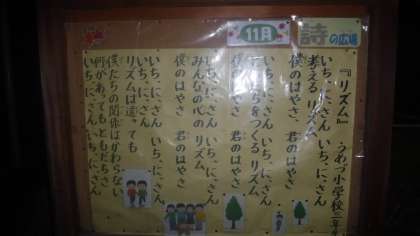 11月
詩の広場
『リズム』 うめづ小学校三年
いち、に、さん いち、に、さん
考える リズム
僕のはやさ、君のはやさ
いち、に、さん いち、に、さん
まちをつくる リズム
僕のはやさ 君のはやさ
いち、に、さん いち、に、さん
みんなの心の リズム
僕のはやさ 君のはやさ
いち、に、さん いち、に、さん
リズムは違っても
僕たちの関係はかわらない
何があってもともだちさ
いち、に、さん いち、に、さん